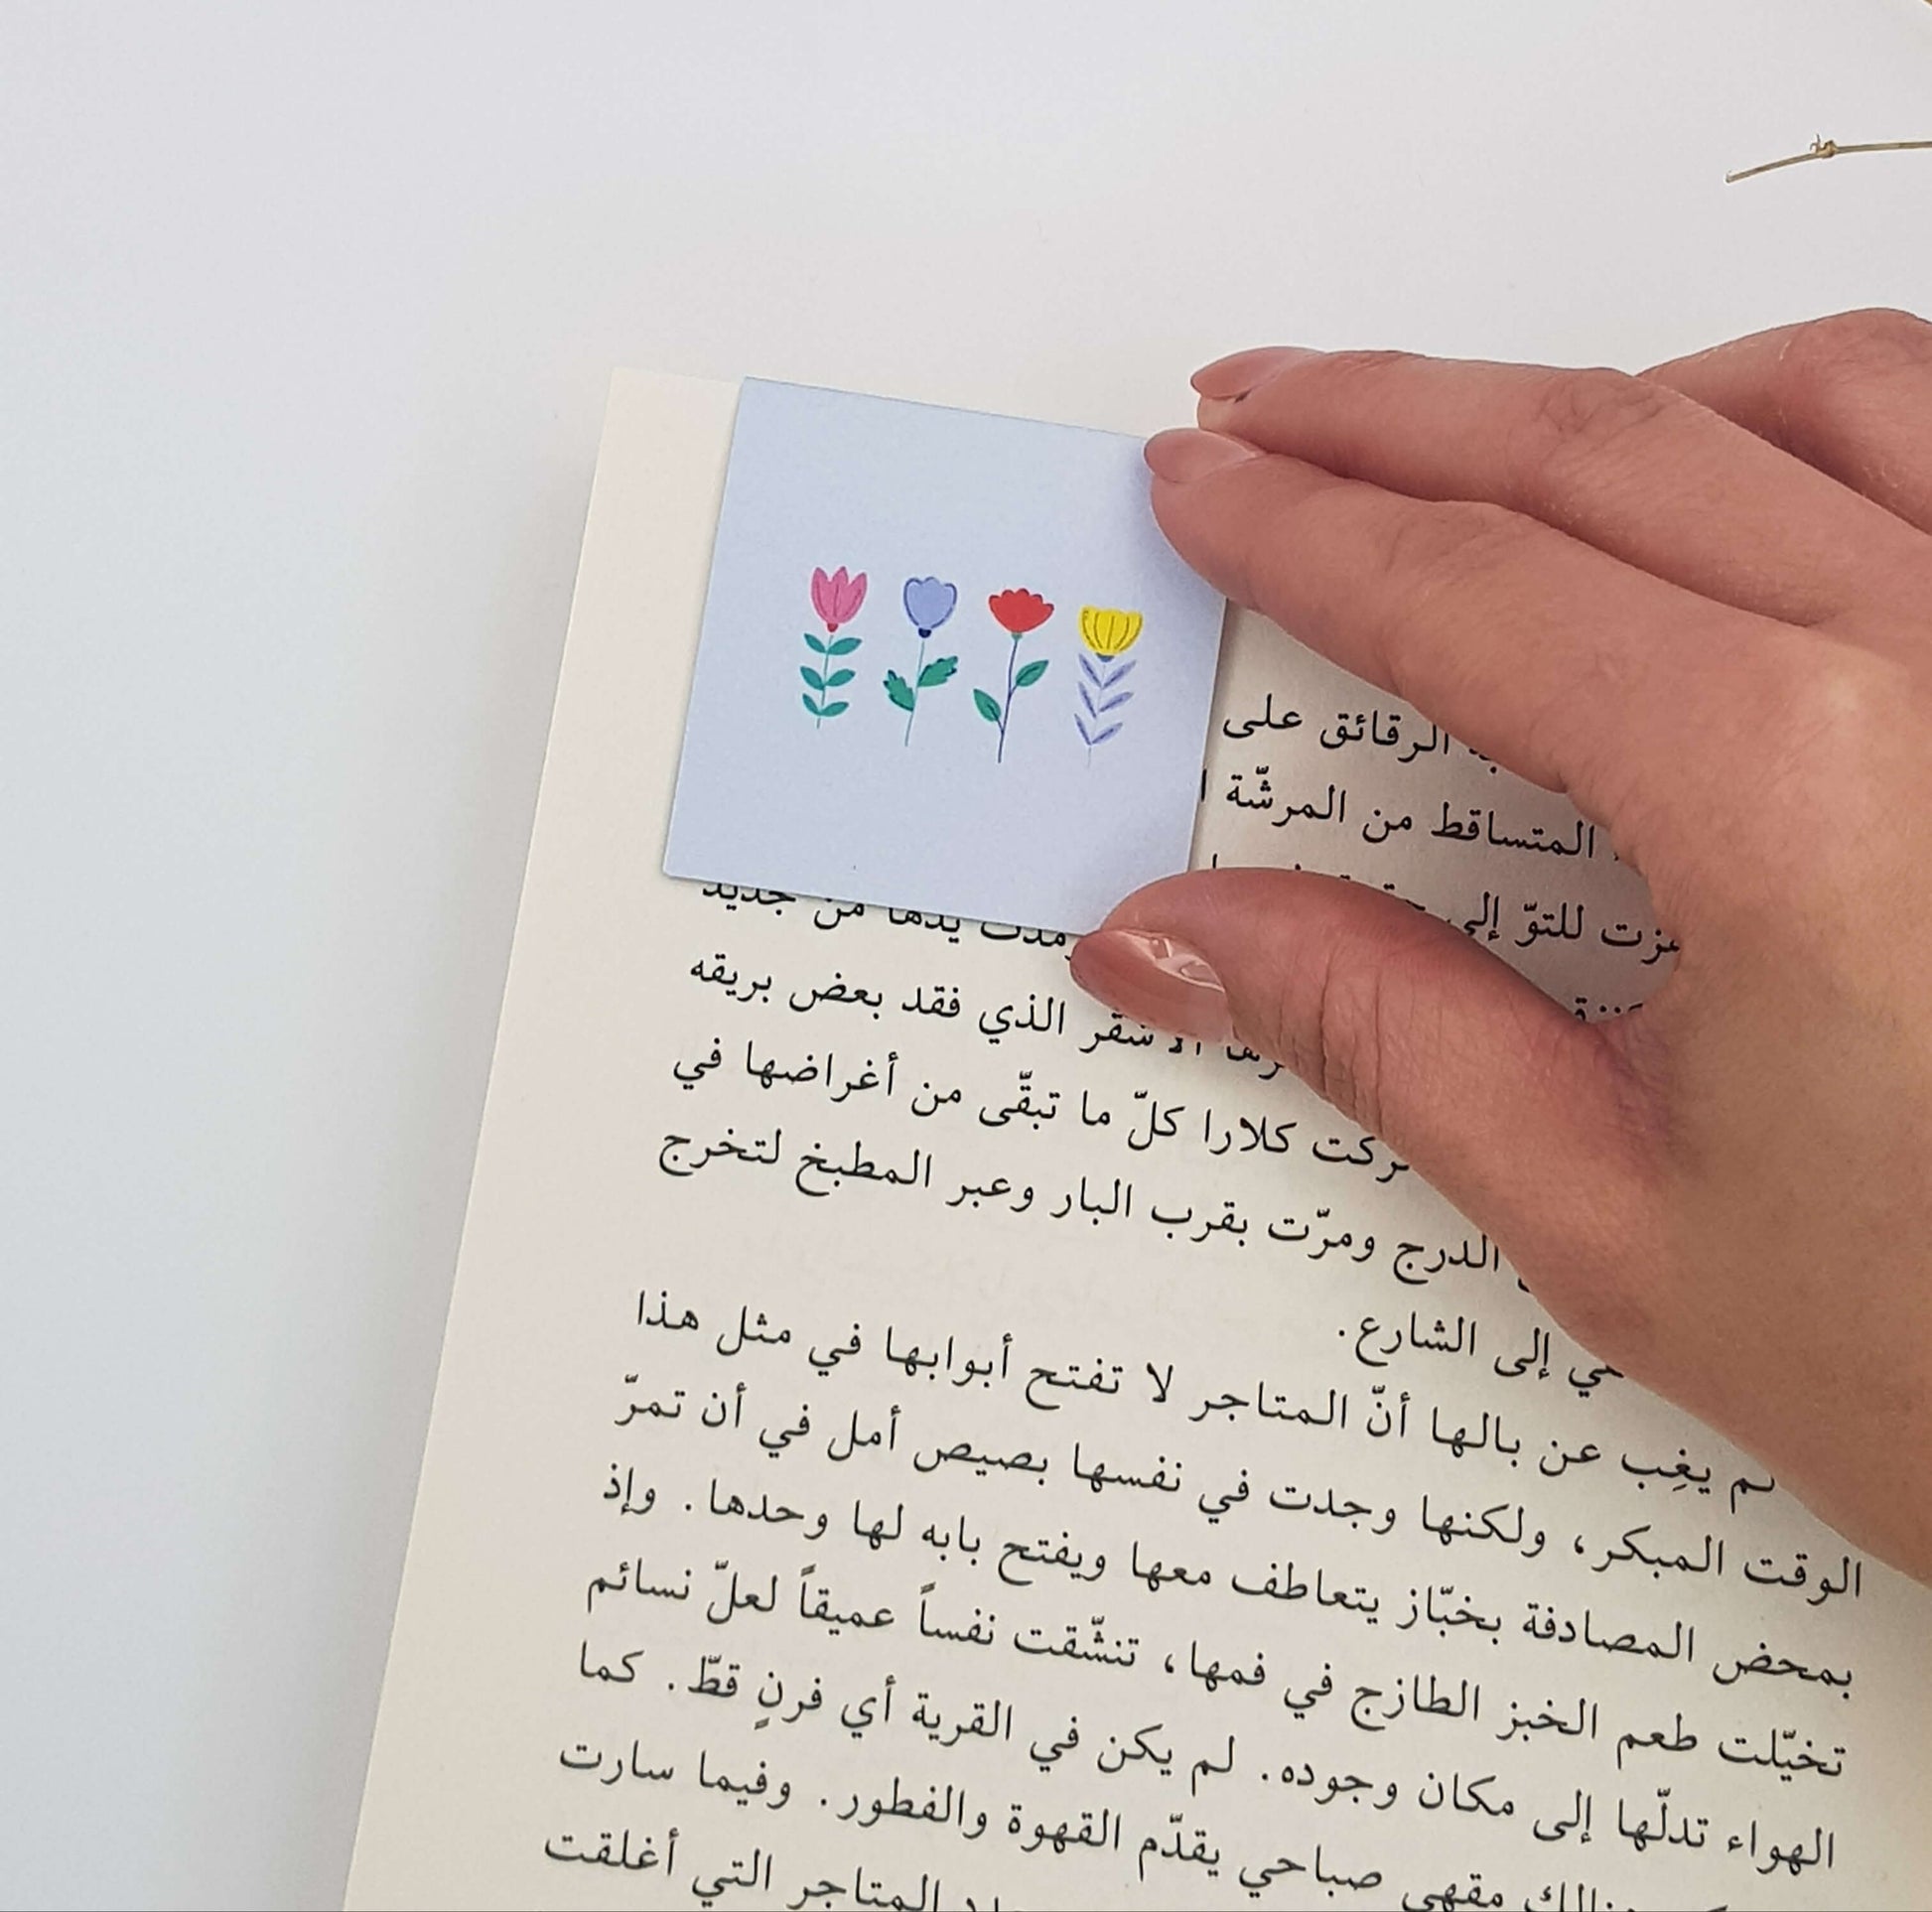 الرقائق على
المتساقط من المرشّة
للتوّ إلى
يدها من جديد
الذي فقد بعض بريقه
كلارا كلّ ما تبقّى من أغراضها في
الدرج ومرّت بقرب البار وعبر المطبخ لتخرج
إلى الشارع.
يغِب عن بالها أنّ المتاجر لا تفتح أبوابها في مثل هذا
الوقت المبكر، ولكنها وجدت في نفسها بصيص أمل في أن تمرّ
بمحض المصادفة بخبّاز يتعاطف معها ويفتح بابه لها وحدها. وإذ
تخيّلت طعم الخبز الطازج في فمها، تنشّقت نفساً عميقاً لعلّ نسائم
الهواء تدلّها إلى مكان وجوده. لم يكن في القرية أي فرنٍ قطّ. كما
مقهى صباحي يقدّم القهوة والفطور. وفيما سارت
المتاجر التي أغلقت